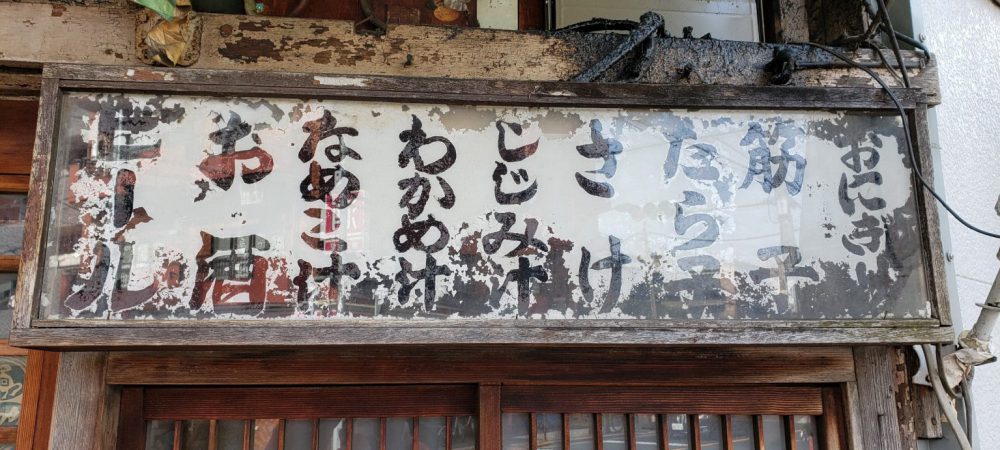 おにぎり
筋子
たらこ
さけ
しじみ汁
わかめ汁
なめこ汁
お酒
ビール